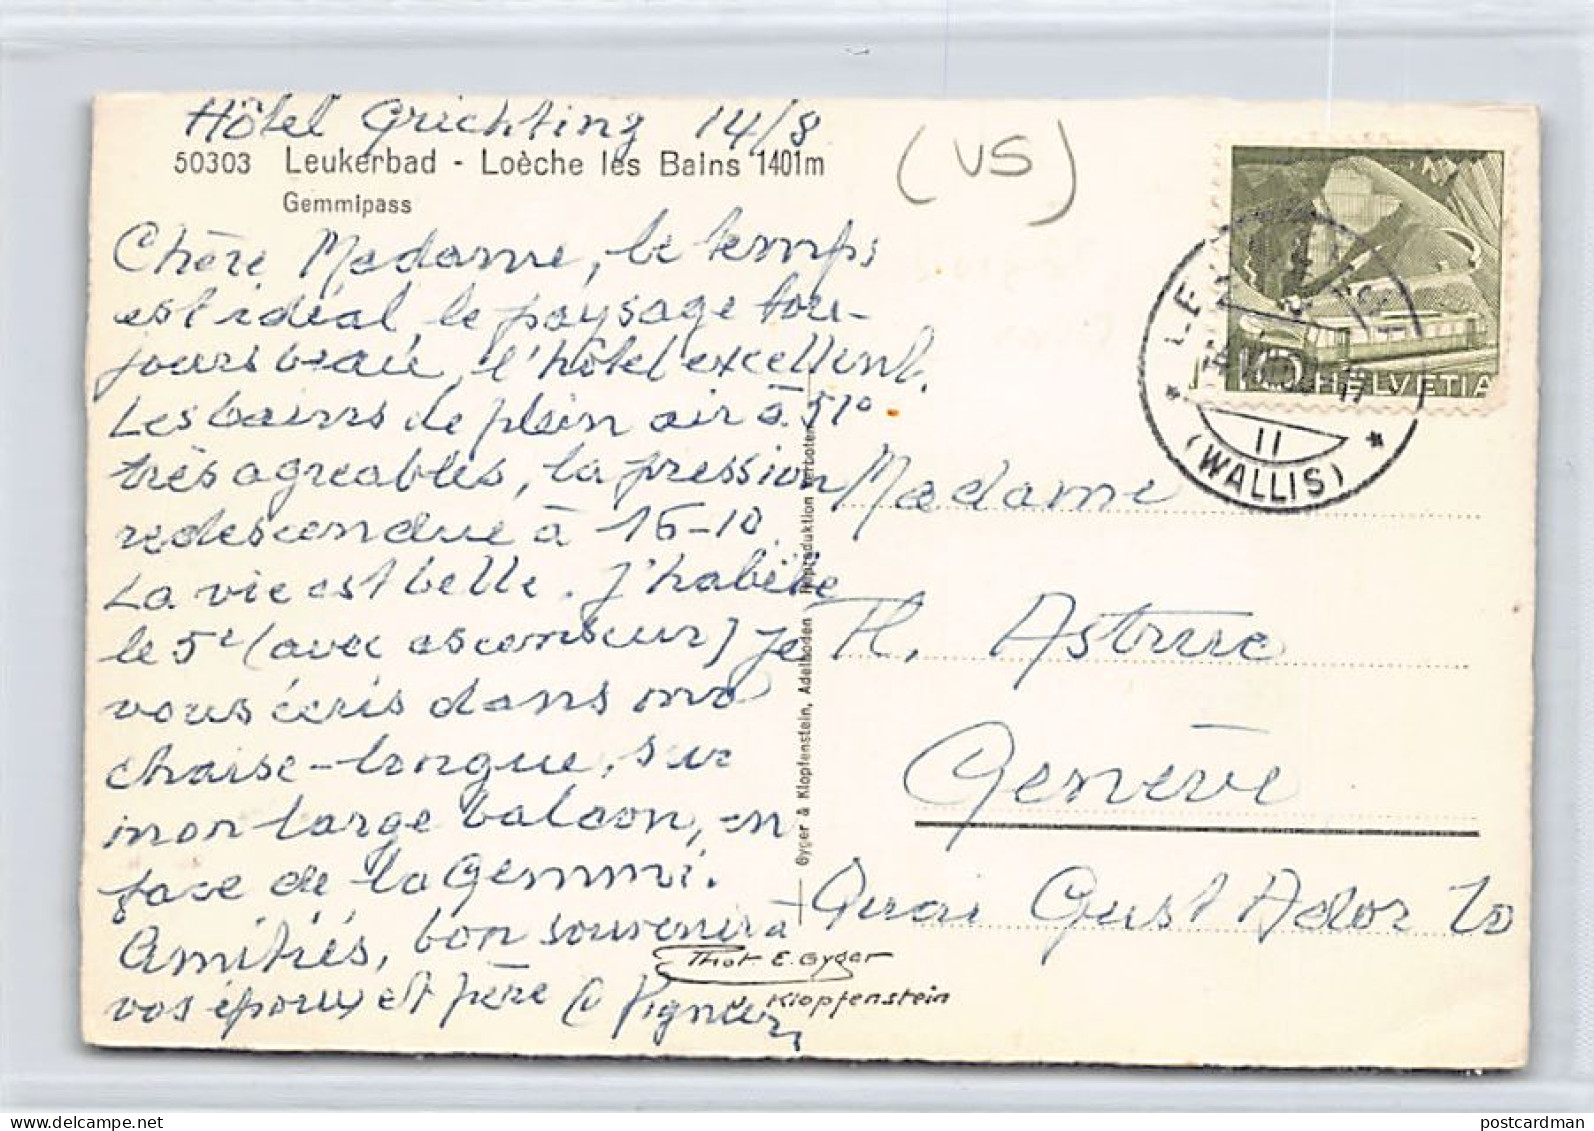 Hôtel Grichting 14/8
50303 Leukerbad - Loèche les Bains 1401m
Gemmipass
(VS)
Chère Madame, le temps
est idéal, le paysage tou-
jours beau, l'hôtel excellent.
Les bains de plein air à 51°
très agréables, la pression
redescendue à 16-10.
La vie est belle. J'habite
le 5e (avec ascenseur) Je
vous écris dans ma
chaise-longue, sur
mon large balcon, en
face de la Gemmi.
Amitiés, bon souvenir à
vos époux et père
Gyger & Klopfenstein, Adelboden Reproduktion verboten
Phot. E. Gyger
Klopfenstein
10 HELVETIA
11
(WALLIS)
Madame
Th. Astruc
Genève
Quai Gust Ador 20
delcampe.net
postcardman